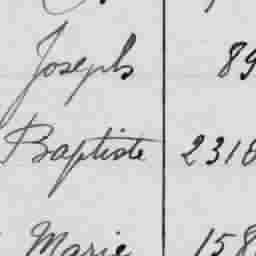 Joseph 89
Baptiste 2318
Marie 158